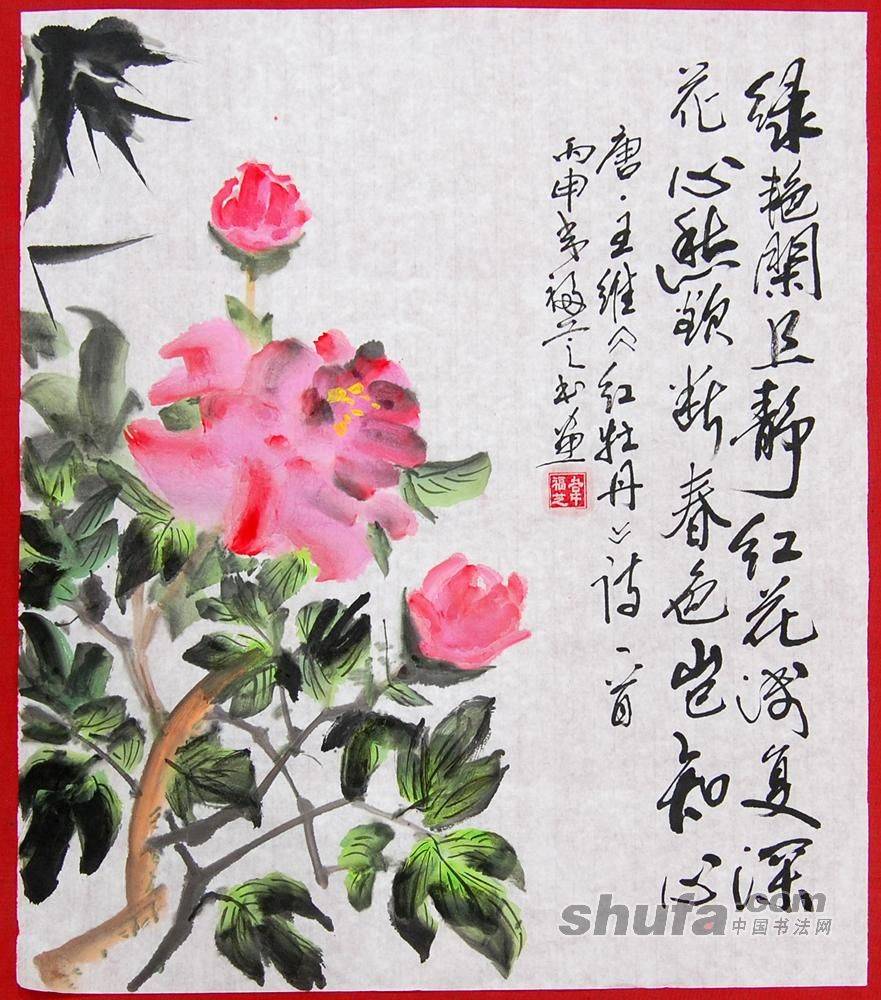 绿艳阑且静红花浅复深
花心愁欲断春色岂知心
唐·王维《红牡丹》诗一首
丙申岁福芝书画
韋福芝
shufa.com
中国书法网